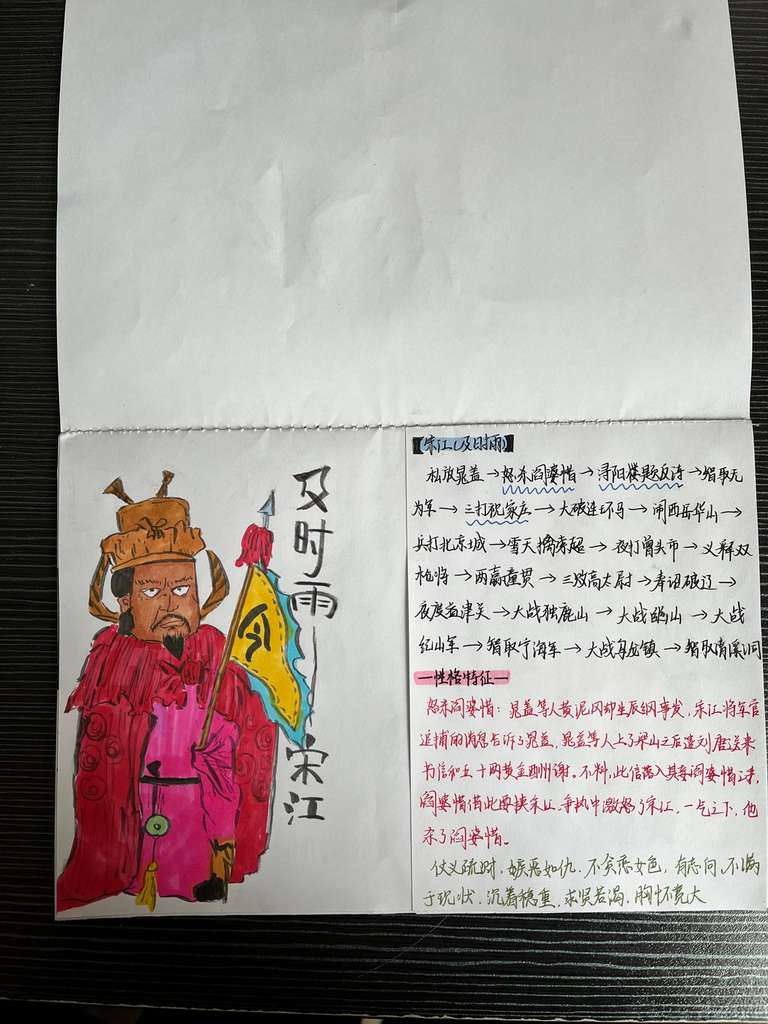 及时雨——宋江
令
【宋江(及时雨)】
私放晁盖→怒杀阎婆惜→浔阳楼题反诗→智取无
为军→三打祝家庄→大破连环马→闹西岳华山→
兵打北京城→雪天擒索超→夜打曾头市→义释双
枪将→两赢童贯→三败高太尉→奉诏破辽→
夜度益津关→大战独鹿山→大战幽山→大战
纪山军→智取宁海军→大战乌龙镇→智取清溪洞
—性格特征—
怒杀阎婆惜:晁盖等人黄泥冈劫生辰纲事发,宋江将军官
追捕的消息告诉了晁盖,晁盖等人上了梁山之后遣刘唐送来
书信和五十两黄金酬谢。不料,此信落入其妾阎婆惜之手,
阎婆惜借此要挟宋江,争执中激怒了宋江,一气之下,他
杀了阎婆惜。
仗义疏财,嫉恶如仇,不贪恋女色,有志向,不满
于现状,沉着稳重,求贤若渴,胸怀宽大